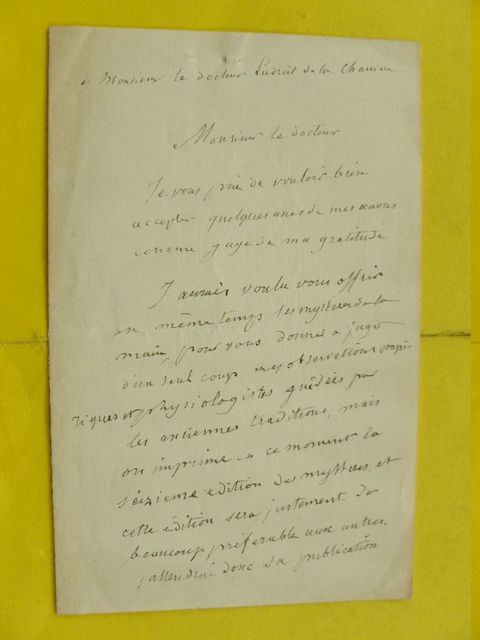 Monsieur le docteur Ludroit de la Charriere
Monsieur le docteur
Je vous prie de vouloir bien
accepter quelques unes de mes œuvres
comme gage de ma gratitude
J'aurais voulu vous offrir
en même temps les mystères de la
main, pour vous donner a juger
d'un seul coup mes observations empi
riques et physiologistes guidées par
les anciennes traditions, mais
on imprime en ce moment la
seizieme edition des mystères, et
cette édition sera justement de
beaucoup préférable aux autres.
j'attendrai donc sa publication